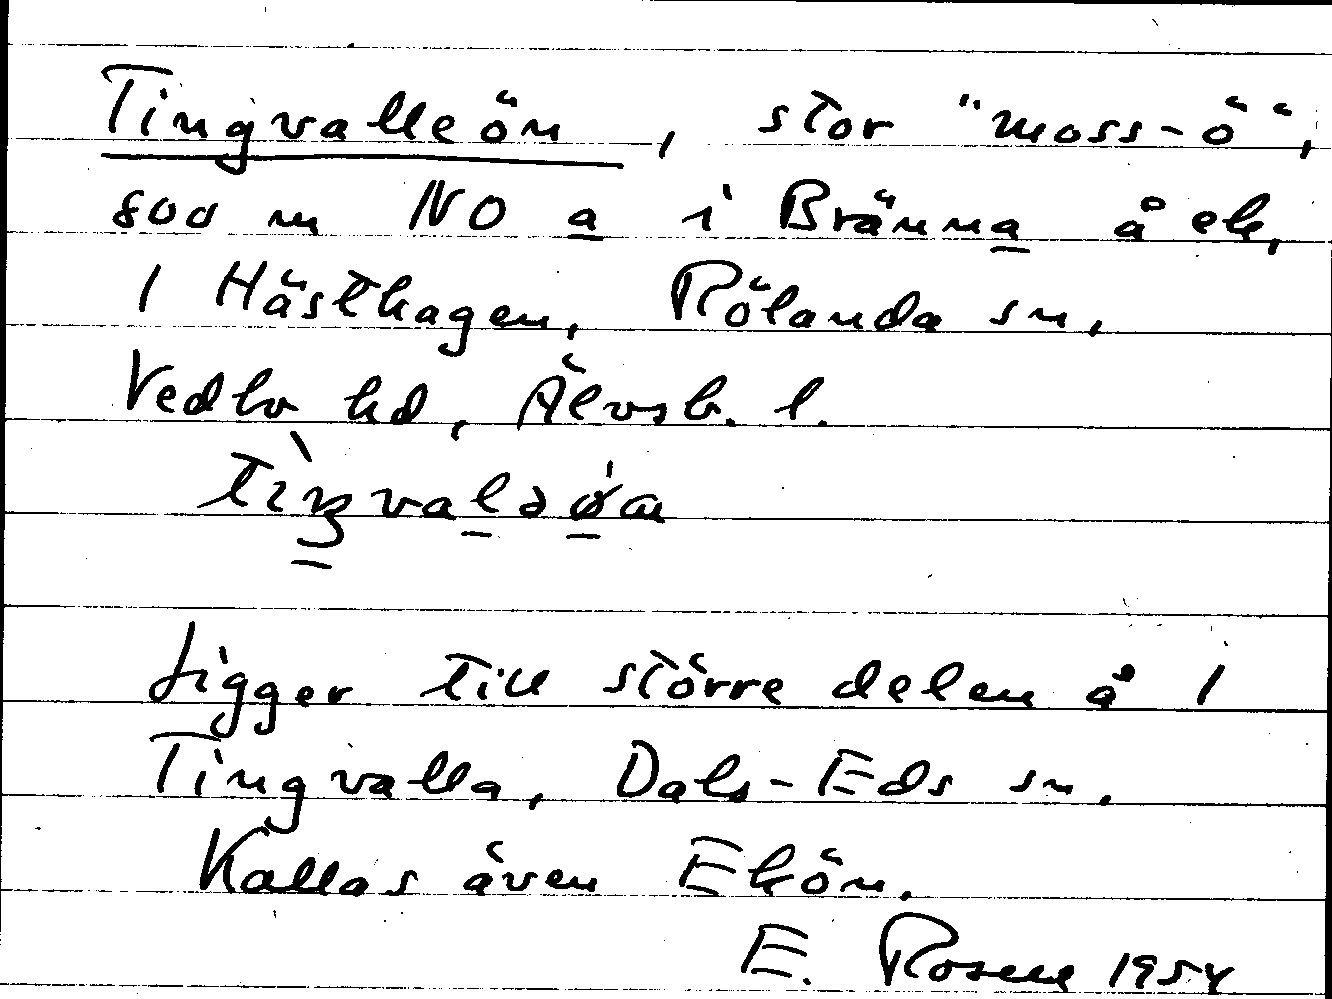 Tingvalleön, stor "moss-ö",
800 m NO a i Bränna å ek,
1 Hästhagen, Rölanda sn,
Vedbo hd, Älvsb. l.
Ligger till större delen å 1
Tingvalla, Dals-Eds sn.
Kallas även Ekön.
E. Rosell 1954